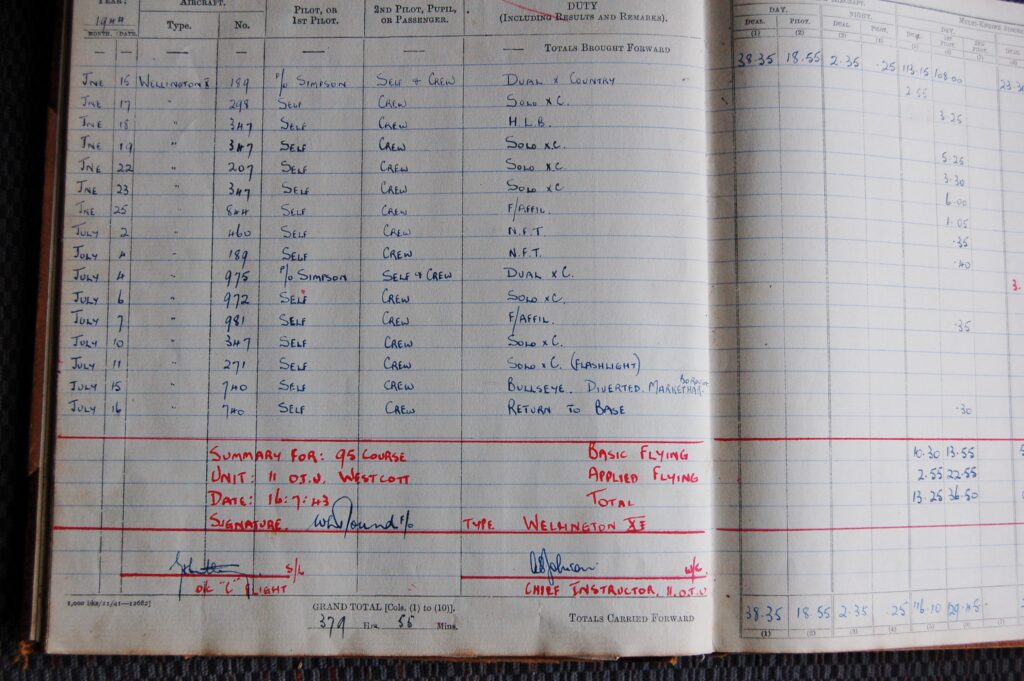 YEAR: AIRCRAFT. PILOT, OR 2ND PILOT, PUPIL, DUTY DAY. NIGHT. DAY.
1944 Type. No. 1ST PILOT. OR PASSENGER. (INCLUDING RESULTS AND REMARKS). DUAL. PILOT. DUAL. PILOT. DUAL
MONTH. DATE. (1) (2) (3) (4) (5)
— — — — — — — TOTALS BROUGHT FORWARD 38.35 18.55 2.35 .25 113.15 108.00
JNE 15 WELLINGTON X 189 P/O SIMPSON SELF & CREW DUAL X COUNTRY 2.55
JNE 17 " 298 SELF CREW SOLO XC. 3.25
JNE 18 " 347 SELF CREW H.L.B.
JNE 19 " 347 SELF CREW SOLO XC. 5.25
JNE 22 " 207 SELF CREW SOLO XC. 3.30
JNE 23 " 347 SELF CREW SOLO XC 6.00
JNE 25 " 844 SELF CREW F/AFFIL. 1.05
JULY 2 " 460 SELF CREW N.F.T. .35
JULY 4 " 189 SELF CREW N.F.T. .40
JULY 4 " 975 P/O SIMPSON SELF & CREW DUAL XC. 3.
JULY 6 " 972 SELF CREW SOLO XC.
JULY 7 " 981 SELF CREW F/AFFIL. .35
JULY 10 " 347 SELF CREW SOLO XC.
JULY 11 " 271 SELF CREW SOLO XC. (FLASHLIGHT)
JULY 15 " 740 SELF CREW BULLSEYE. DIVERTED. MARKET HARBOROUGH
JULY 16 " 740 SELF CREW RETURN TO BASE .30
SUMMARY FOR: 95 COURSE BASIC FLYING 10.30 13.55
UNIT: 11 O.T.U. WESTCOTT APPLIED FLYING 2.55 22.55
DATE: 16:7:43 TOTAL 13.25 36.50
SIGNATURE. TYPE WELLINGTON
S/L W/C.
O/C "C" FLIGHT CHIEF INSTRUCTOR, 11.O.T.U
GRAND TOTAL [Cols. (1) to (10)]. TOTALS CARRIED FORWARD 38.35 18.55 2.35 .25 116.10
379 Hrs. 55 Mins. (1) (2) (3) (4) (5)